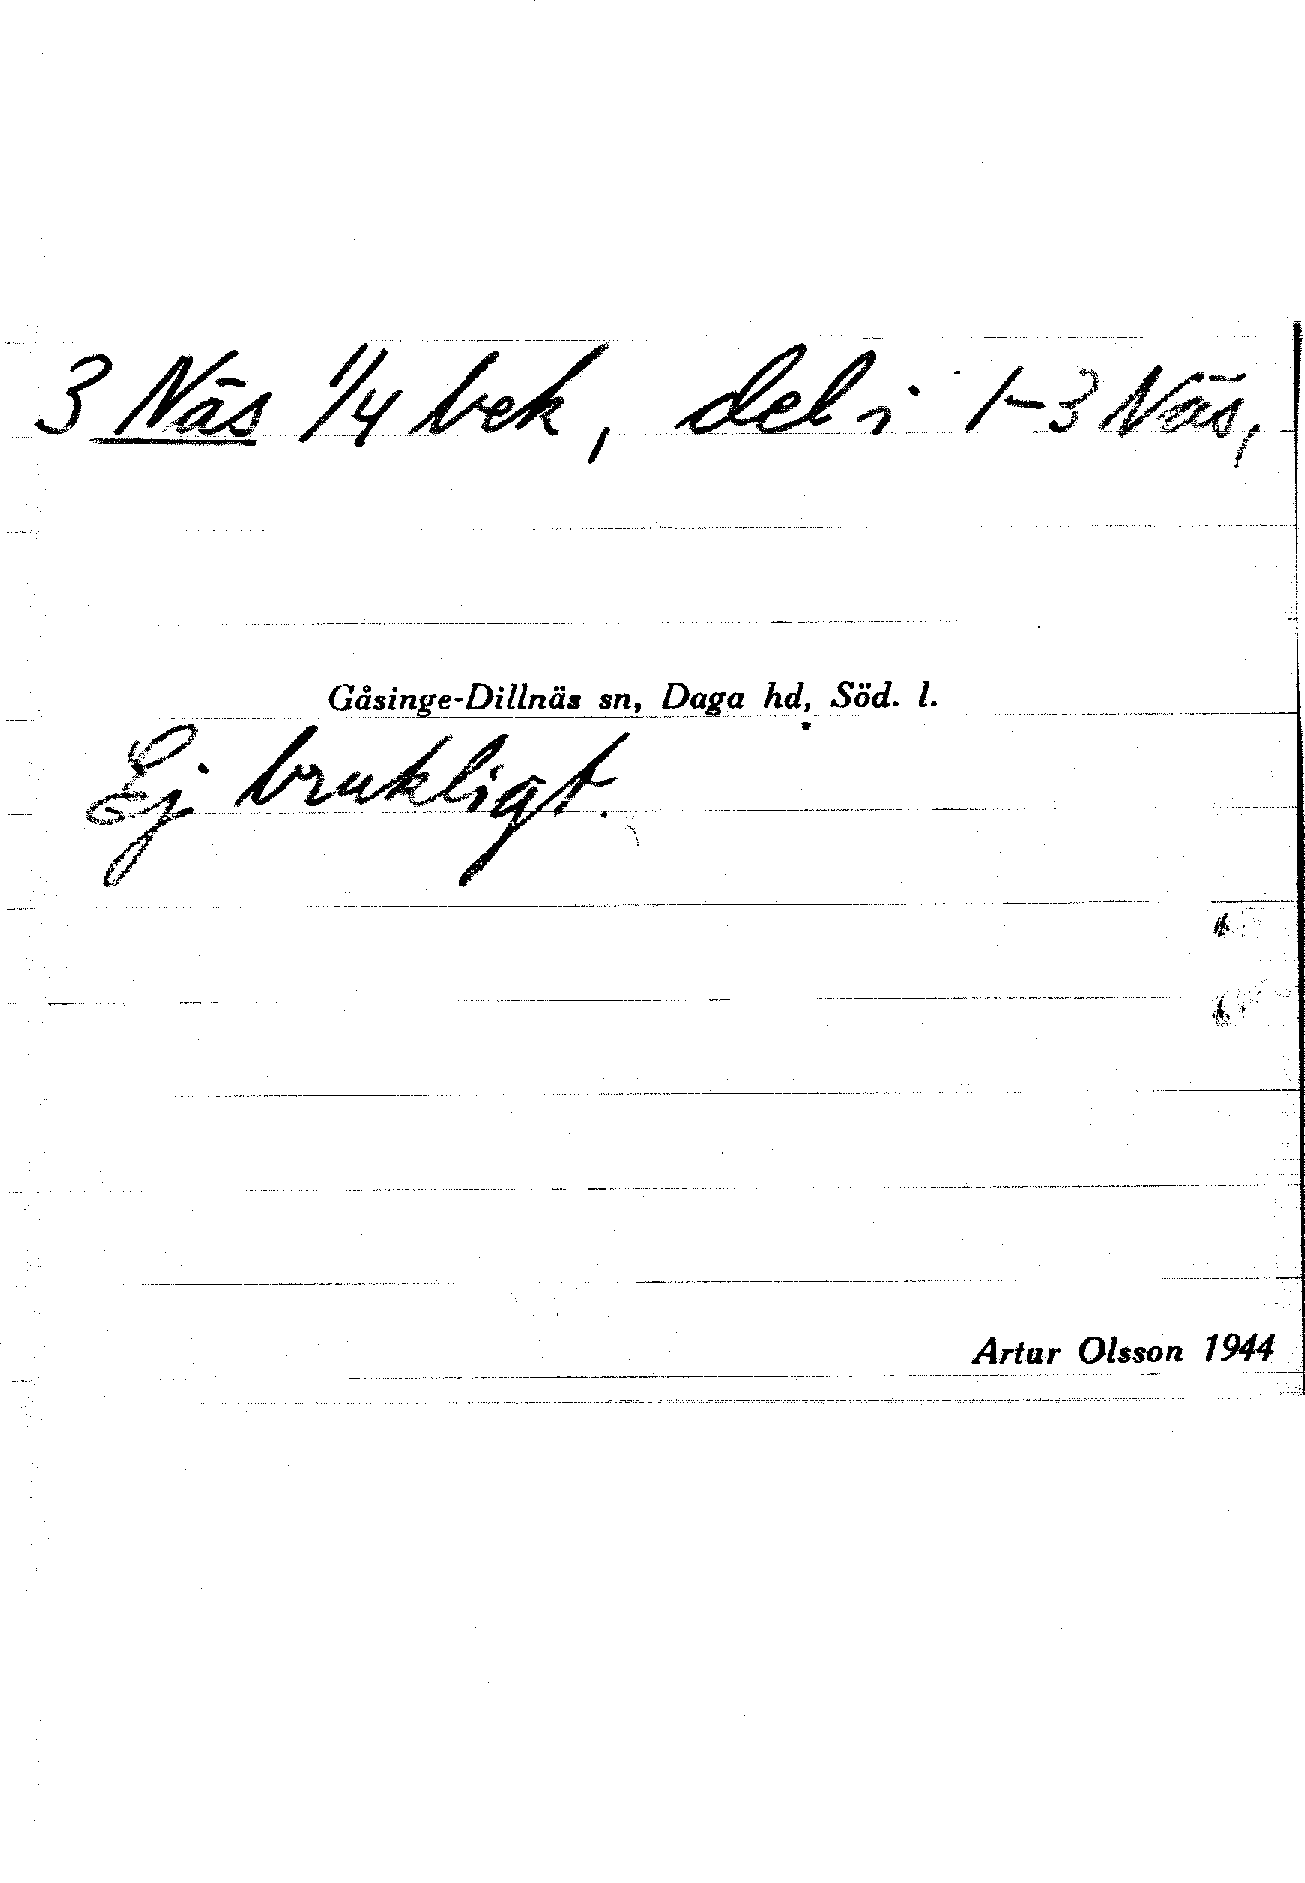 3 Näs 1/4 bek, del i 1-3 Näs,
Gåsinge-Dillnäs sn, Daga hd, Söd. l.
Ej brukligt.
Artur Olsson 1944